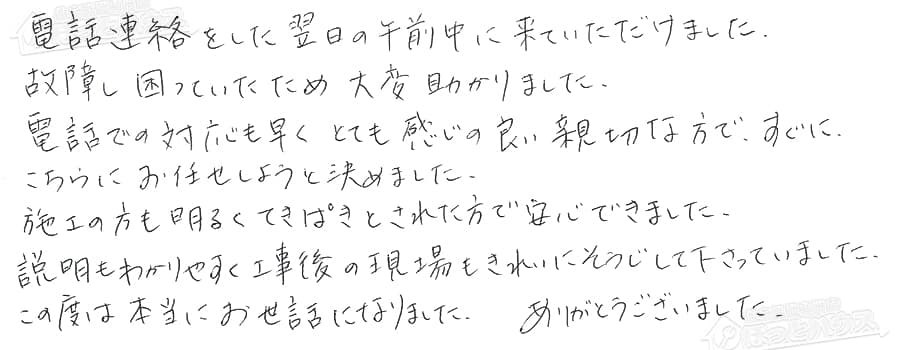 電話連絡をした翌日の午前中に来ていただけました.
故障し困っていたため大変助かりました.
電話での対応も早くとても感じの良い親切な方で、すぐに.
こちらにお任せしようと決めました.
施工の方も明るくてきぱきとされた方で安心できました.
説明もわかりやすく工事後の現場もきれいにそうじして下さっていました.
この度は本当にお世話になりました. ありがとうございました.